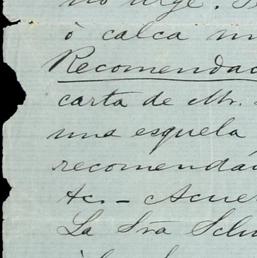 no urge.
ó calca
Recomendac
carta de Mr.
una esquela
recomendad
&c. – Acue
La Sra Schu